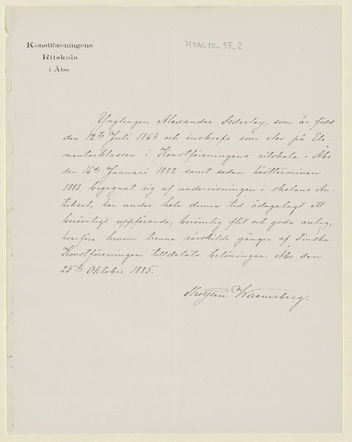 Konstföreningens
Ritskola
i Åbo.
Ynglingen Alexander Federley, som är född
den 12te Juli 1864 och inskrefs som elev på Ele-
mentarklassen i Konstföreningens ritskola i Åbo
den 16de Januari 1882 samt sedan höstterminen
1883 begagnat sig af undervisningen i skolans An-
tiksal, har under hela denna tid ådagalagt ett
berömligt uppförande, berömlig flit och goda anlag,
hvarför honom trenne särskilda gånger af Finska
Konstföreningen tilldelats belöningar. Åbo den
25te Oktober 1885.
Thorsten Waenerberg.